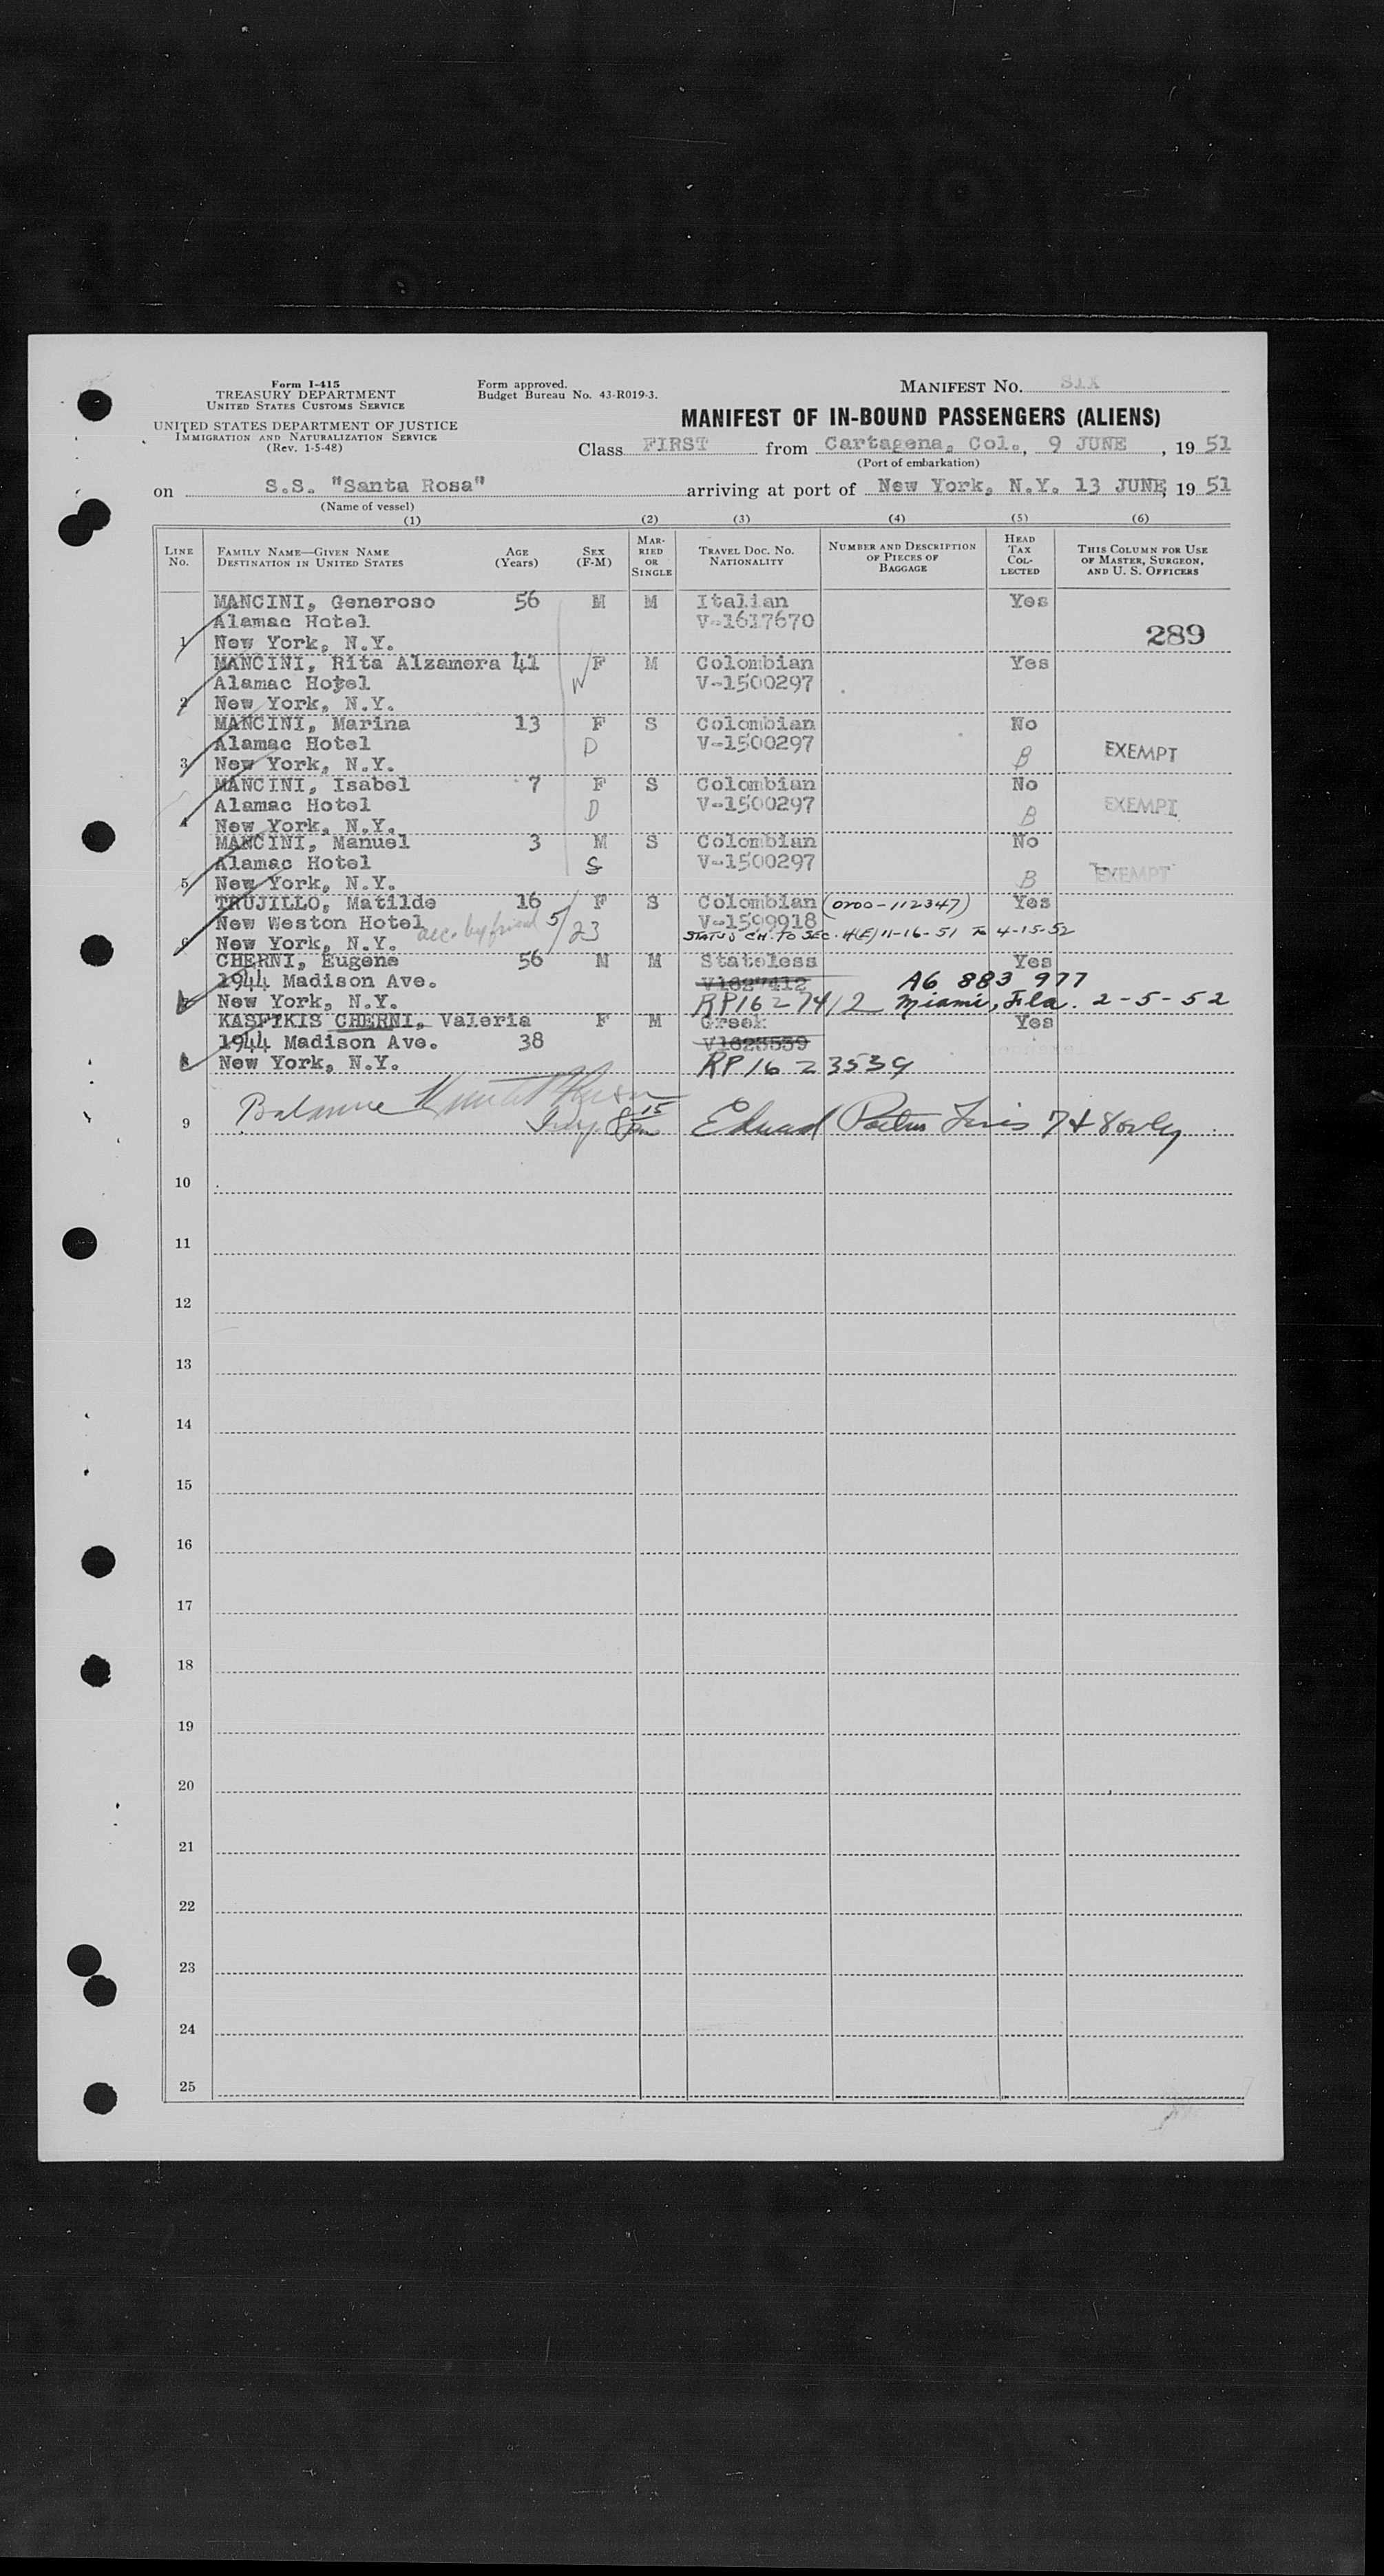 Form I-415
TREASURY DEPARTMENT
UNITED STATES CUSTOMS SERVICE
UNITED STATES DEPARTMENT OF JUSTICE
IMMIGRATION AND NATURALIZATION SERVICE
(Rev. 1-5-48)
Form approved.
Budget Bureau No. 43-R019-3.
MANIFEST NO. SIX
MANIFEST OF IN-BOUND PASSENGERS (ALIENS)
Class FIRST from Cartagena, Col., 9 JUNE, 19 51
(Port of embarkation)
on S.S. "Santa Rosa" arriving at port of New York, N.Y. 13 JUNE, 19 51
(Name of vessel)
(1) (2) (3) (4) (5) (6)
LINE No. FAMILY NAME—GIVEN NAME DESTINATION IN UNITED STATES AGE (Years) SEX (F-M) MARRIED OR SINGLE TRAVEL DOC. NO. NATIONALITY NUMBER AND DESCRIPTION OF PIECES OF BAGGAGE HEAD TAX COLLECTED THIS COLUMN FOR USE OF MASTER, SURGEON, AND U. S. OFFICERS
MANCINI, Generoso 56 M M Italian Yes
Alamac Hotel V-1617670
1 New York, N.Y. 289
MANCINI, Rita Alzamora 41 F M Colombian Yes
Alamac Hotel W V-1500297
2 New York, N.Y.
MANCINI, Marina 13 F S Colombian No
Alamac Hotel D V-1500297 B EXEMPT
3 New York, N.Y.
MANCINI, Isabel 7 F S Colombian No
Alamac Hotel D V-1500297 B EXEMPT
4 New York, N.Y.
MANCINI, Manuel 3 M S Colombian No
Alamac Hotel S V-1500297
5 New York, N.Y. B EXEMPT
TRUJILLO, Matilde 16 F S Colombian (0200-112347) Yes
New Weston Hotel acc. by friend 5/23 V-1599918
6 New York, N.Y. STATUS CH. TO SEC. 4(E) 11-16-51 TO 4-15-52
CHERNI, Eugene 56 M M Stateless Yes
1944 Madison Ave. V1627412 A6 883 977
New York, N.Y. RP1627412 Miami, Fla. 2-5-52
KASFIKIS CHERNI, Valeria F M Greek Yes
1944 Madison Ave. 38 V1623539
8 New York, N.Y. RP1623539
Balance
9 7 & 8 only
10
11
12
13
14
15
16
17
18
19
20
21
22
23
24
25